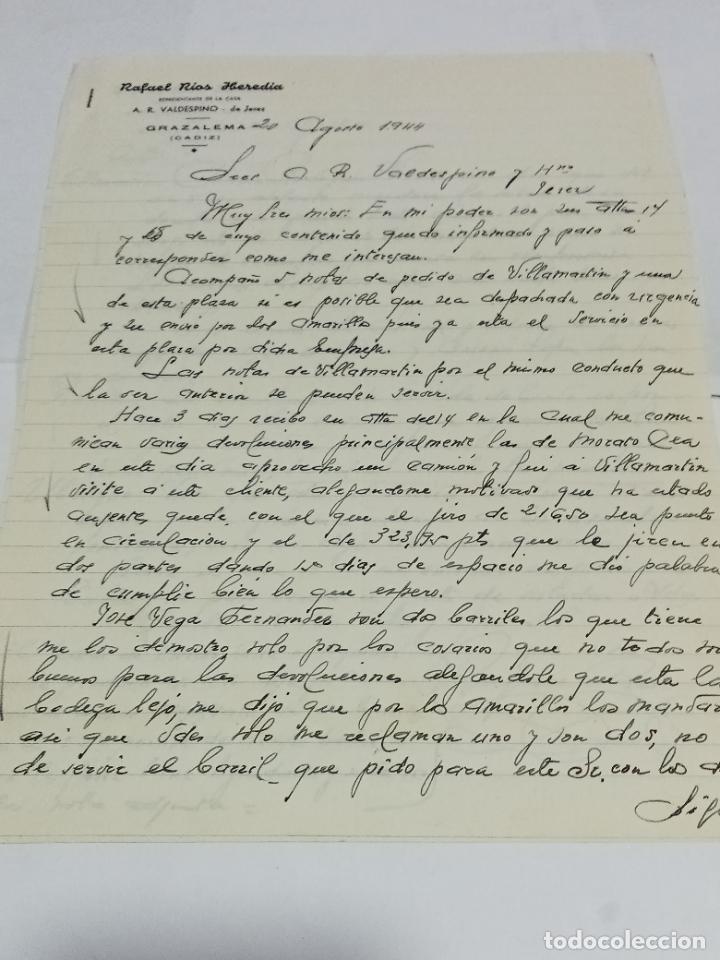 Rafael Ríos Heredia
REPRESENTANTE DE LA CASA
A. R. VALDESPINO - de Jerez
GRAZALEMA 20 Agosto 1944
(CADIZ)
Sres A. R. Valdespino y Hno
Jerez
Muy Sres mios: En mi poder son sus atta 14
y 18 de cuyo contenido quedo informado y paso á
corresponder como me interesan.
Acompaño 5 notas de pedido de Villamartin y una
de esta plaza si es posible que sea despachada con urgencia
y su envio por los Amarillos pues ya esta el servicio en
esta plaza por dicha Empresa.
Las notas de Villamartin por el mismo conducto que
la ser anterior se pueden servir.
Hace 3 dias recibo su atta del 14 en la cual me comu-
nican varias devoluciones principalmente las de Morato
en este dia aprovecho un camión y fui á Villamartin
visite á este cliente, alegandome motivado que ha estado
ausente quede con el que el jiro de 216,50 sea puesto
en circulacion y el de 323,95 pts que le jiren en
dos partes dando 15 dias de espacio me dió palabra
de cumplir bién lo que espero.
José Vega Fernandez son dos barriles los que tiene
me los demostro, solo por los cosarios que no todos son
buenos para las devoluciones alegandole que esta la
bodega lejó, me dijó que por los Amarillos los mandar
asi que Udes solo me reclaman uno y son dos, no
de servir el barril que pido para este Sr. con los d
Sigu
todocoleccion
todocoleccion.net